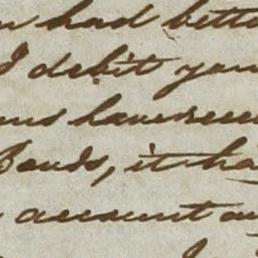 had bette
I debit you
ns have recei
Bonds, it ha
account an